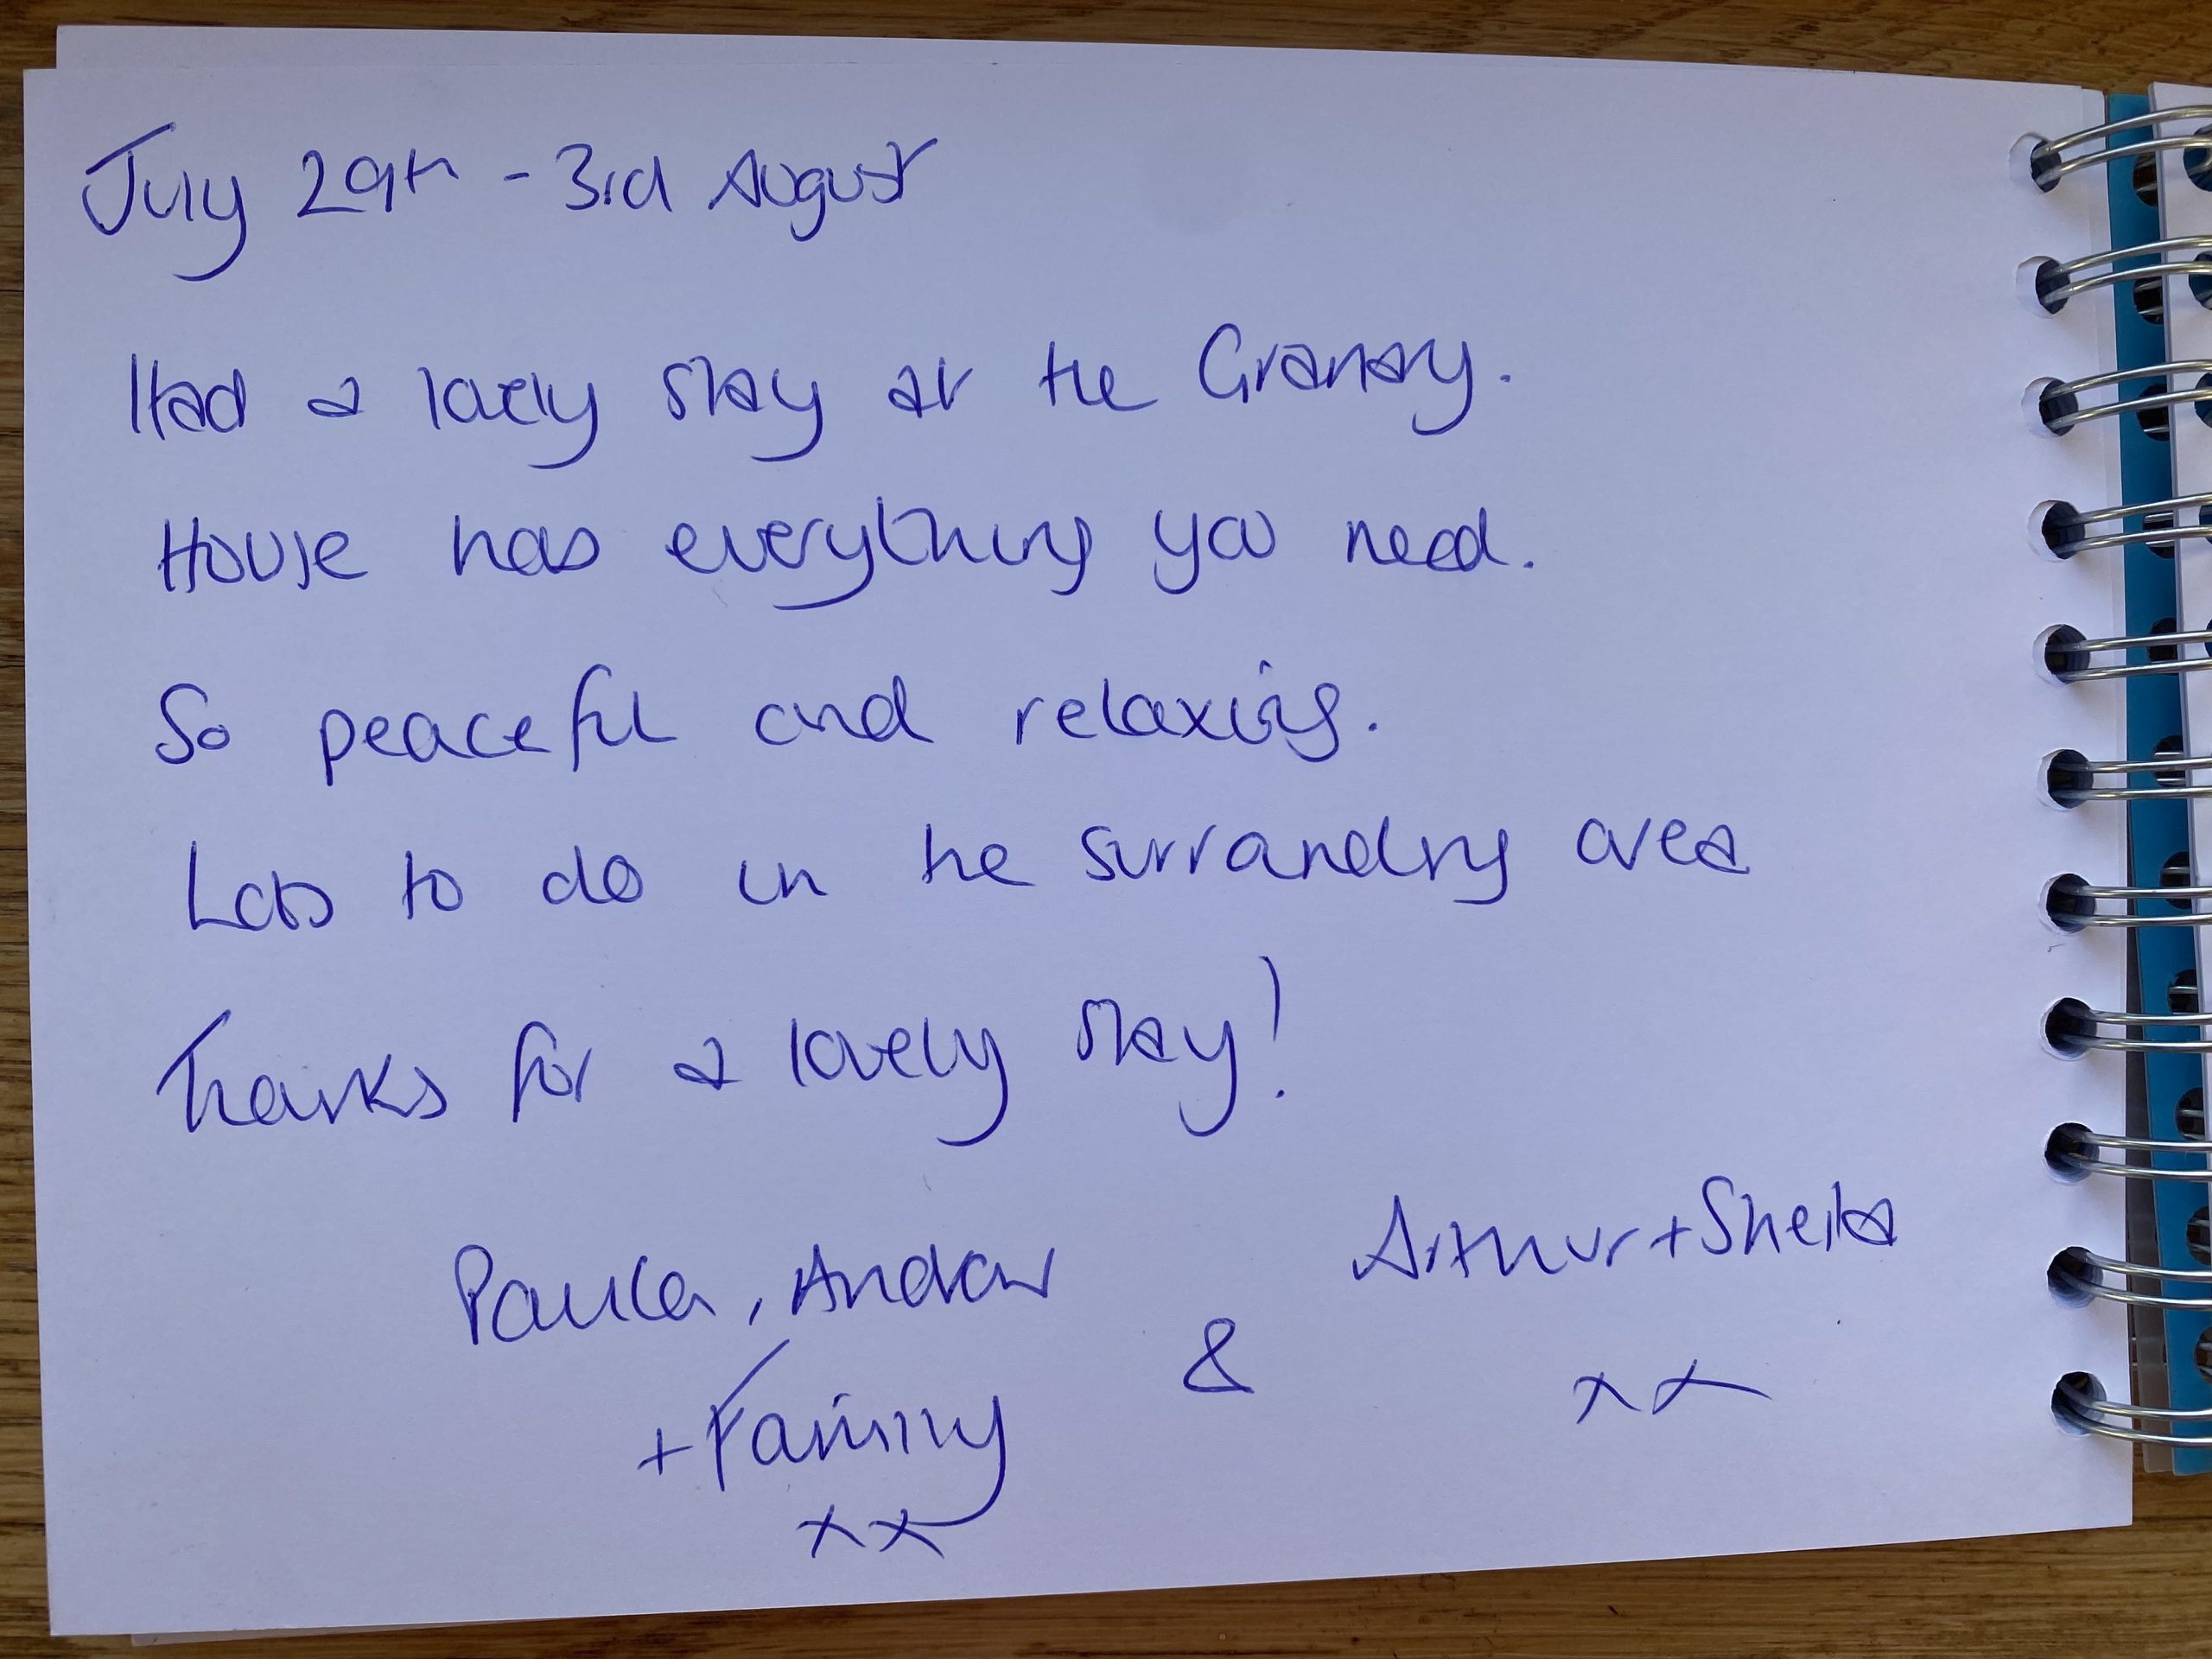 July 29th - 3rd August
Had a lovely stay at the Granary.
House has everything you need.
So peaceful and relaxing.
Lots to do in the surrounding area
Thanks for a lovely stay!
Paula, Andrew & Arthur + Sheila
+ Family xx
xx